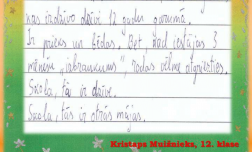 nas izdzīvo dzīvi 12 gadu garumā.
Ir prieks un bēdas. Bet, kad iestājas 3
mēnešu "izbraukums", rodas vēlme atgriezties.
Skola, tā ir dzīve.
Skola, tās ir otrās mājas.
Kristaps Muižnieks, 12. klase